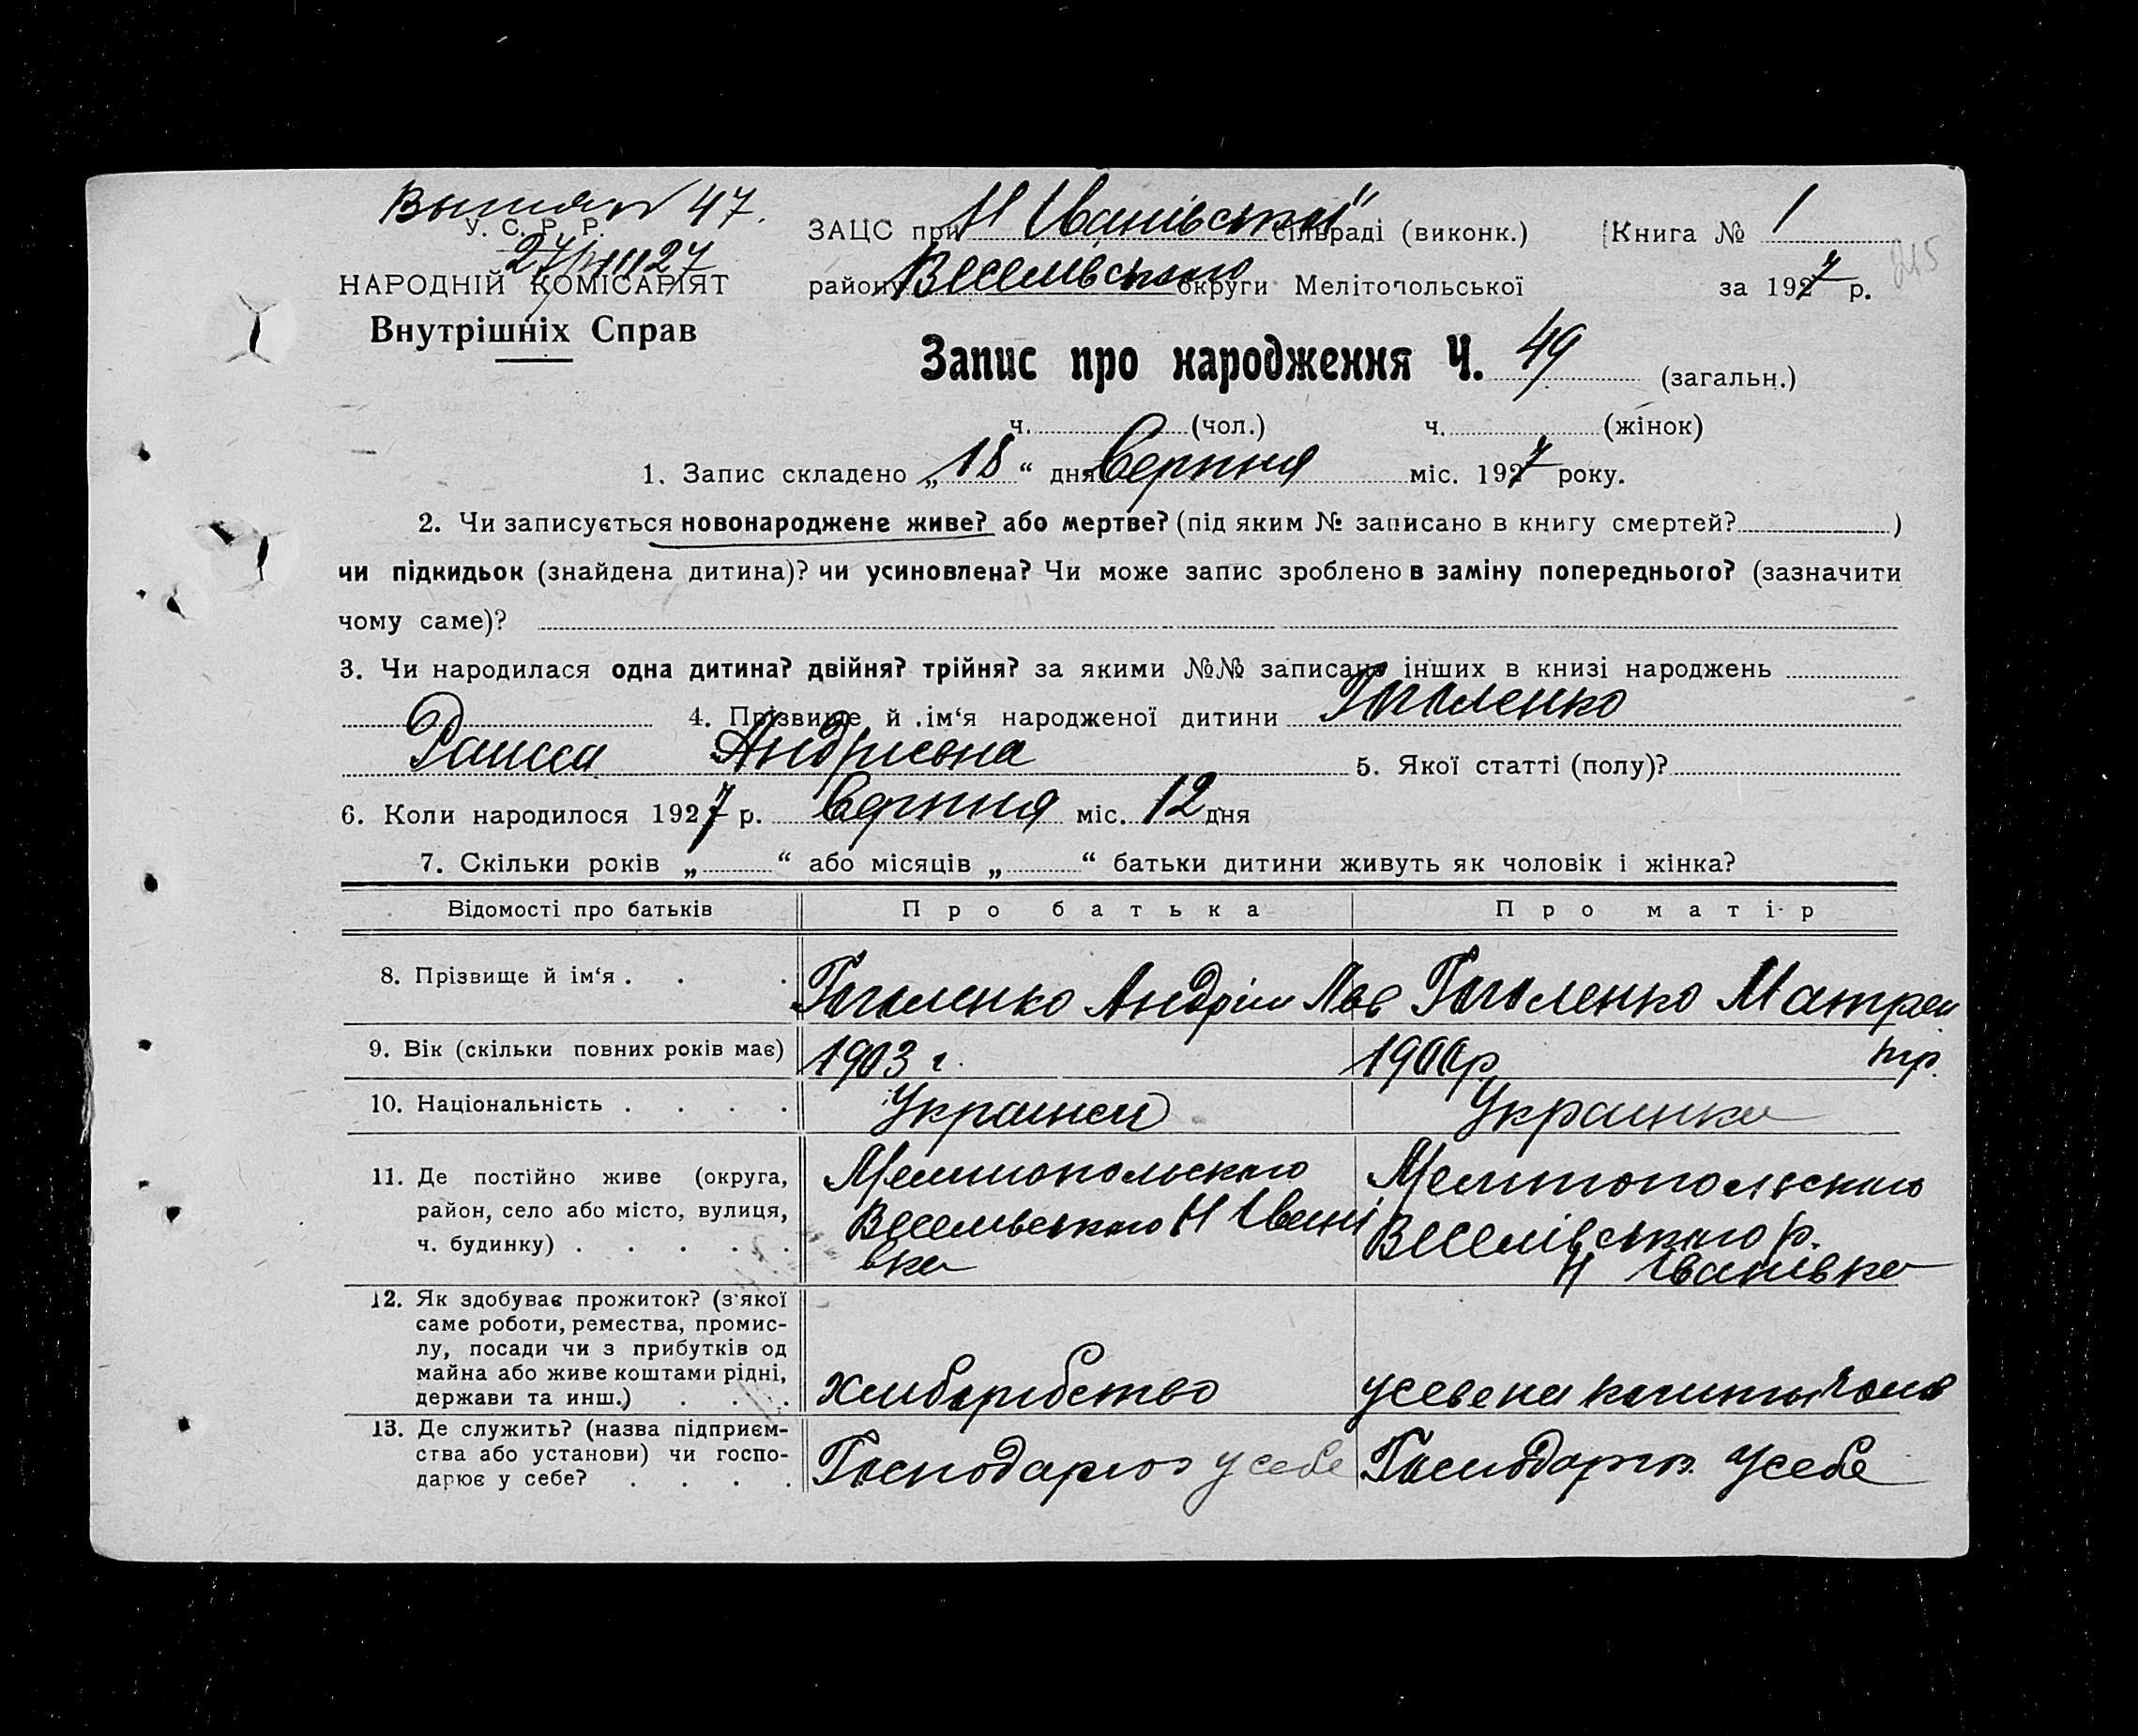 47.
У. С. Р. Р.
27/VIII 27
НАРОДНІЙ КОМІСАРІЯТ
Внутрішніх Справ
ЗАЦС при Н Іванівській сільраді (виконк.) Книга № 1
району Веселівського округи Мелітопольської за 1927 р.
215
Запис про народження Ч. 49 (загальн.)
ч. (чол.) ч. (жінок)
1. Запис складено „18“ дня Серпня міс. 1927 року.
2. Чи записується новонароджене живе? або мертве? (під яким № записано в книгу смертей? )
чи підкидьок (знайдена дитина)? чи усиновлена? Чи може запис зроблено в заміну попереднього? (зазначити
чому саме)?
3. Чи народилася одна дитина? двійня? трійня? за якими №№ записано інших в книзі народжень
4. Прізвище й ім‘я народженої дитини Гоголенко
Раисса Андрієвна 5. Якої статті (полу)?
6. Коли народилося 1927 р. Серпня міс. 12 дня
7. Скільки років „ “ або місяців „ “ батьки дитини живуть як чоловік і жінка?
Відомості про батьків Про батька Про матір
8. Прізвище й ім‘я . . . Гоголенко Андрій Гоголенко Матрен
9. Вік (скільки повних років має) 1903 г. 1900 р
10. Національність . . . . Украинец Украинка
11. Де постійно живе (округа, Мелитопольского Мелитопольского
район, село або місто, вулиця, Веселвського Н Івані Веселівського р.
ч. будинку) . . . . . вка Н Іванівка
12. Як здобуває прожиток? (з якої
саме роботи, ремества, промис-
лу, посади чи з прибутків од
майна або живе коштами рідні,
держави та инш.) . . . хлиборобство на кошты
13. Де служить? (назва підприєм-
ства або установи) чи госпо- Господарюэ у себе Господарюэ у себе
дарює у себе? . . . .